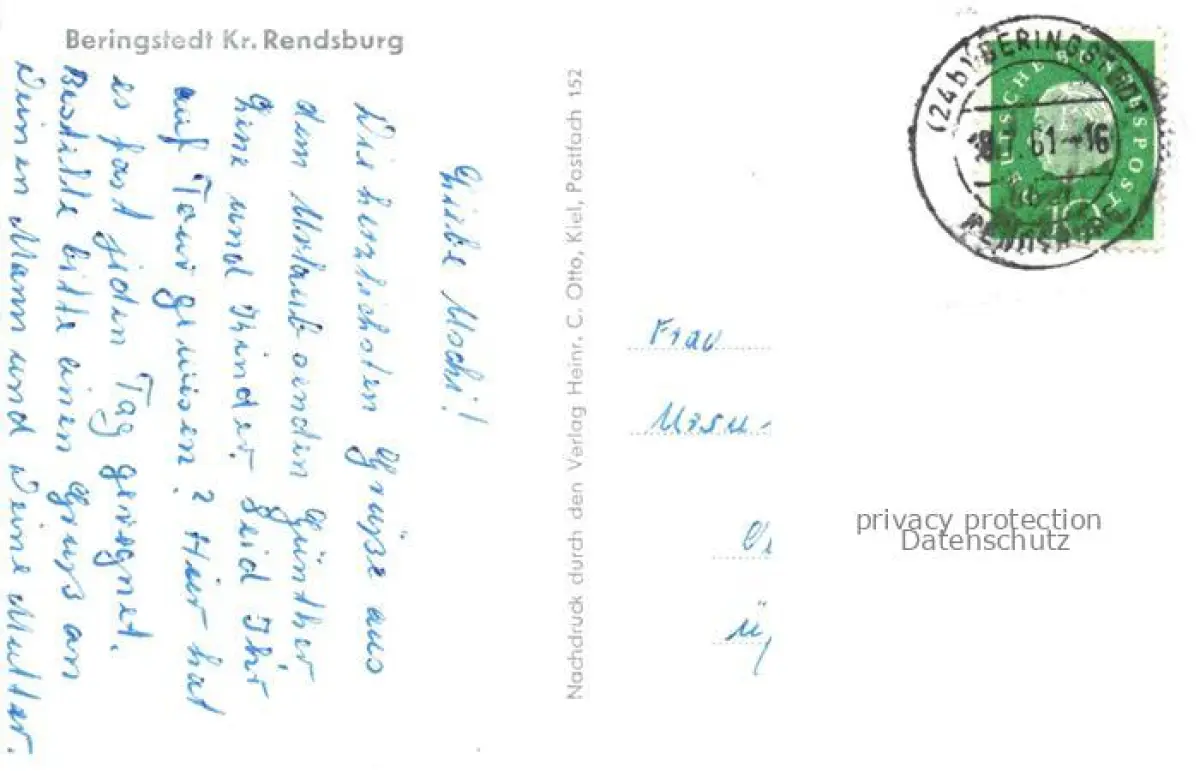 Beringstedt Kr. Rendsburg
Liebe Uschi!
Die herzlichsten Grüße aus
dem Urlaub senden Günther
Gine und Kinder. Seid Ihr
auf Tour gewesen? Hier hat
es fast jeden Tag geregnet.
Bestelle bitte einen Gruß an
Deinen Mann und Deine Mutter.
Nachdruck durch den Verlag Heinr. C. Otto, Kiel, Postfach 152
(24b) BERINGSTEDT
61-16
RENDSBURG
DEUTSCHE BUNDESPOST
10
Frau
Ursu-
privacy protection
Datenschutz